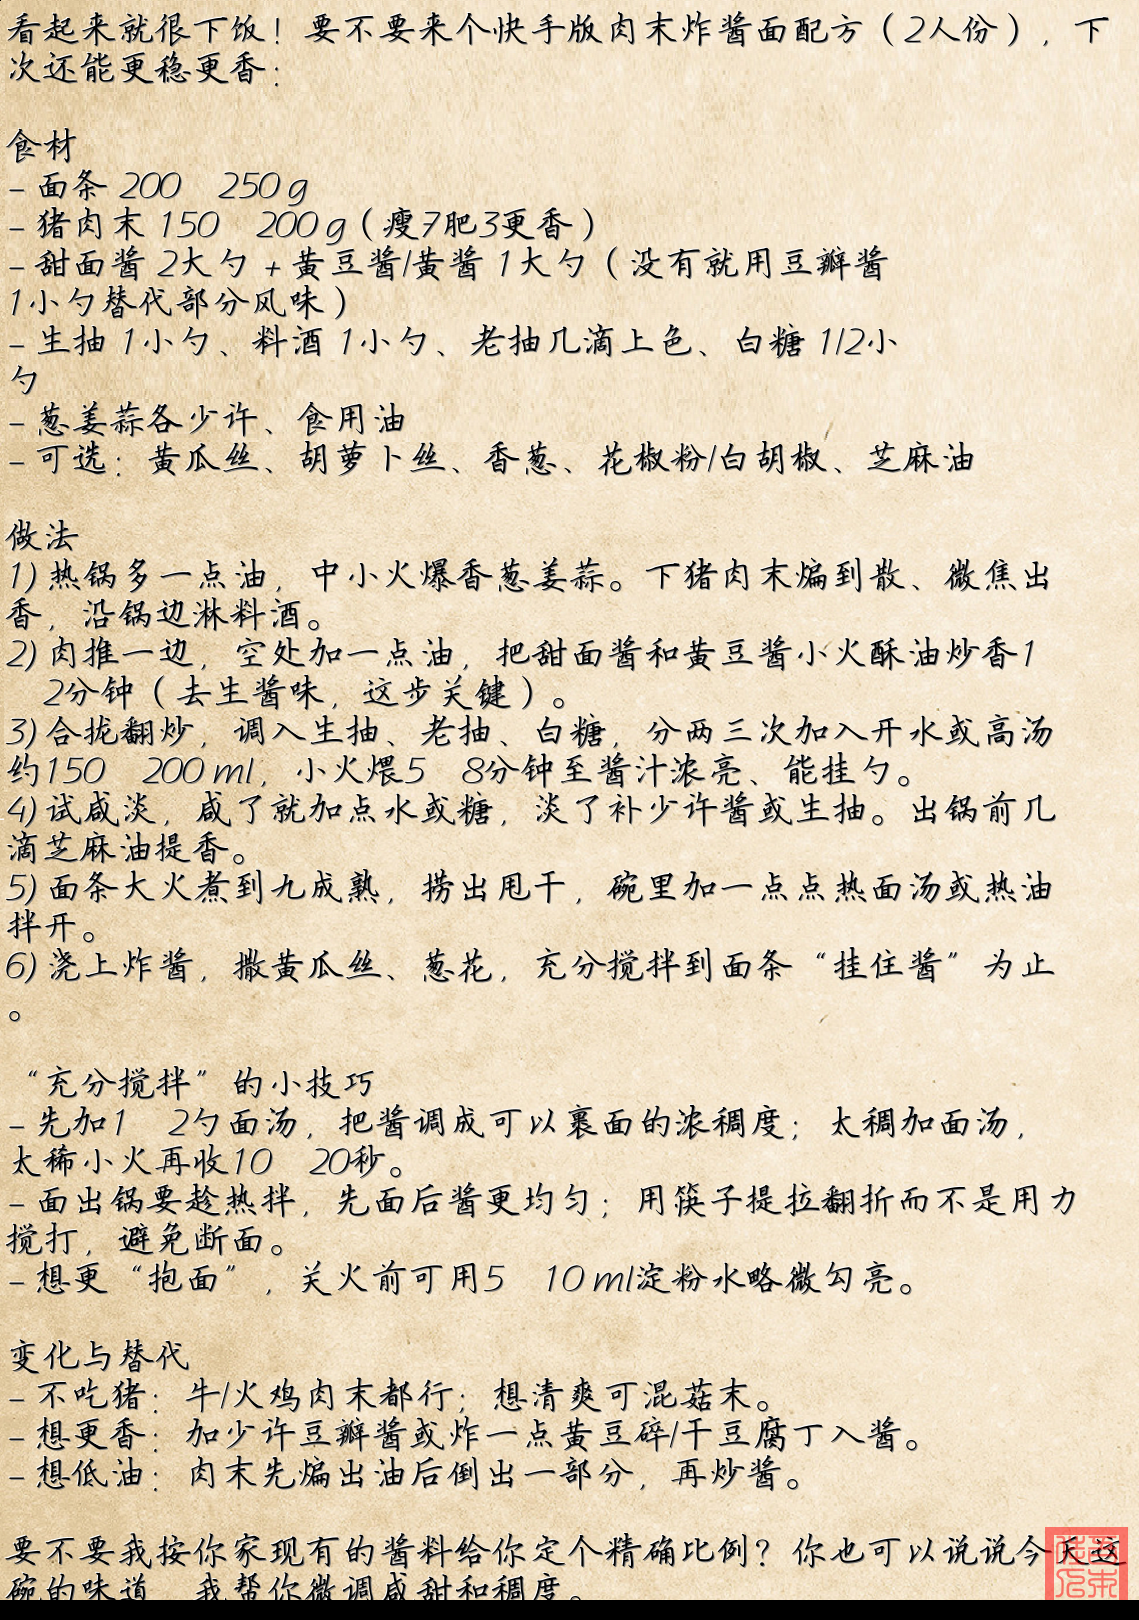 看起来就很下饭！要不要来个快手版肉末炸酱面配方（2人份），下
次还能更稳更香：
食材
- 面条 200 250 g
- 猪肉末 150 200 g（瘦7肥3更香）
- 甜面酱 2大勺 + 黄豆酱/黄酱 1大勺（没有就用豆瓣酱
1小勺替代部分风味）
- 生抽 1小勺、料酒 1小勺、老抽几滴上色、白糖 1/2小
勺
- 葱姜蒜各少许、食用油
- 可选：黄瓜丝、胡萝卜丝、香葱、花椒粉/白胡椒、芝麻油
做法
1) 热锅多一点油，中小火爆香葱姜蒜。下猪肉末煸到散、微焦出
香，沿锅边淋料酒。
2) 肉推一边，空处加一点油，把甜面酱和黄豆酱小火酥油炒香1
2分钟（去生酱味，这步关键）。
3) 合拢翻炒，调入生抽、老抽、白糖，分两三次加入开水或高汤
约150 200 ml，小火煨5 8分钟至酱汁浓亮、能挂勺。
4) 试咸淡，咸了就加点水或糖，淡了补少许酱或生抽。出锅前几
滴芝麻油提香。
5) 面条大火煮到九成熟，捞出甩干，碗里加一点点热面汤或热油
拌开。
6) 浇上炸酱，撒黄瓜丝、葱花，充分搅拌到面条“挂住酱”为止
。
“充分搅拌”的小技巧
- 先加1 2勺面汤，把酱调成可以裹面的浓稠度；太稠加面汤，
太稀小火再收10 20秒。
- 面出锅要趁热拌，先面后酱更均匀；用筷子提拉翻折而不是用力
搅打，避免断面。
- 想更“抱面”，关火前可用5 10 ml淀粉水略微勾亮。
变化与替代
- 不吃猪：牛/火鸡肉末都行；想清爽可混菇末。
- 想更香：加少许豆瓣酱或炸一点黄豆碎/干豆腐丁入酱。
- 想低油：肉末先煸出油后倒出一部分，再炒酱。
要不要我按你家现有的酱料给你定个精确比例？你也可以说说今天这
碗的味道，我帮你微调咸甜和稠度。